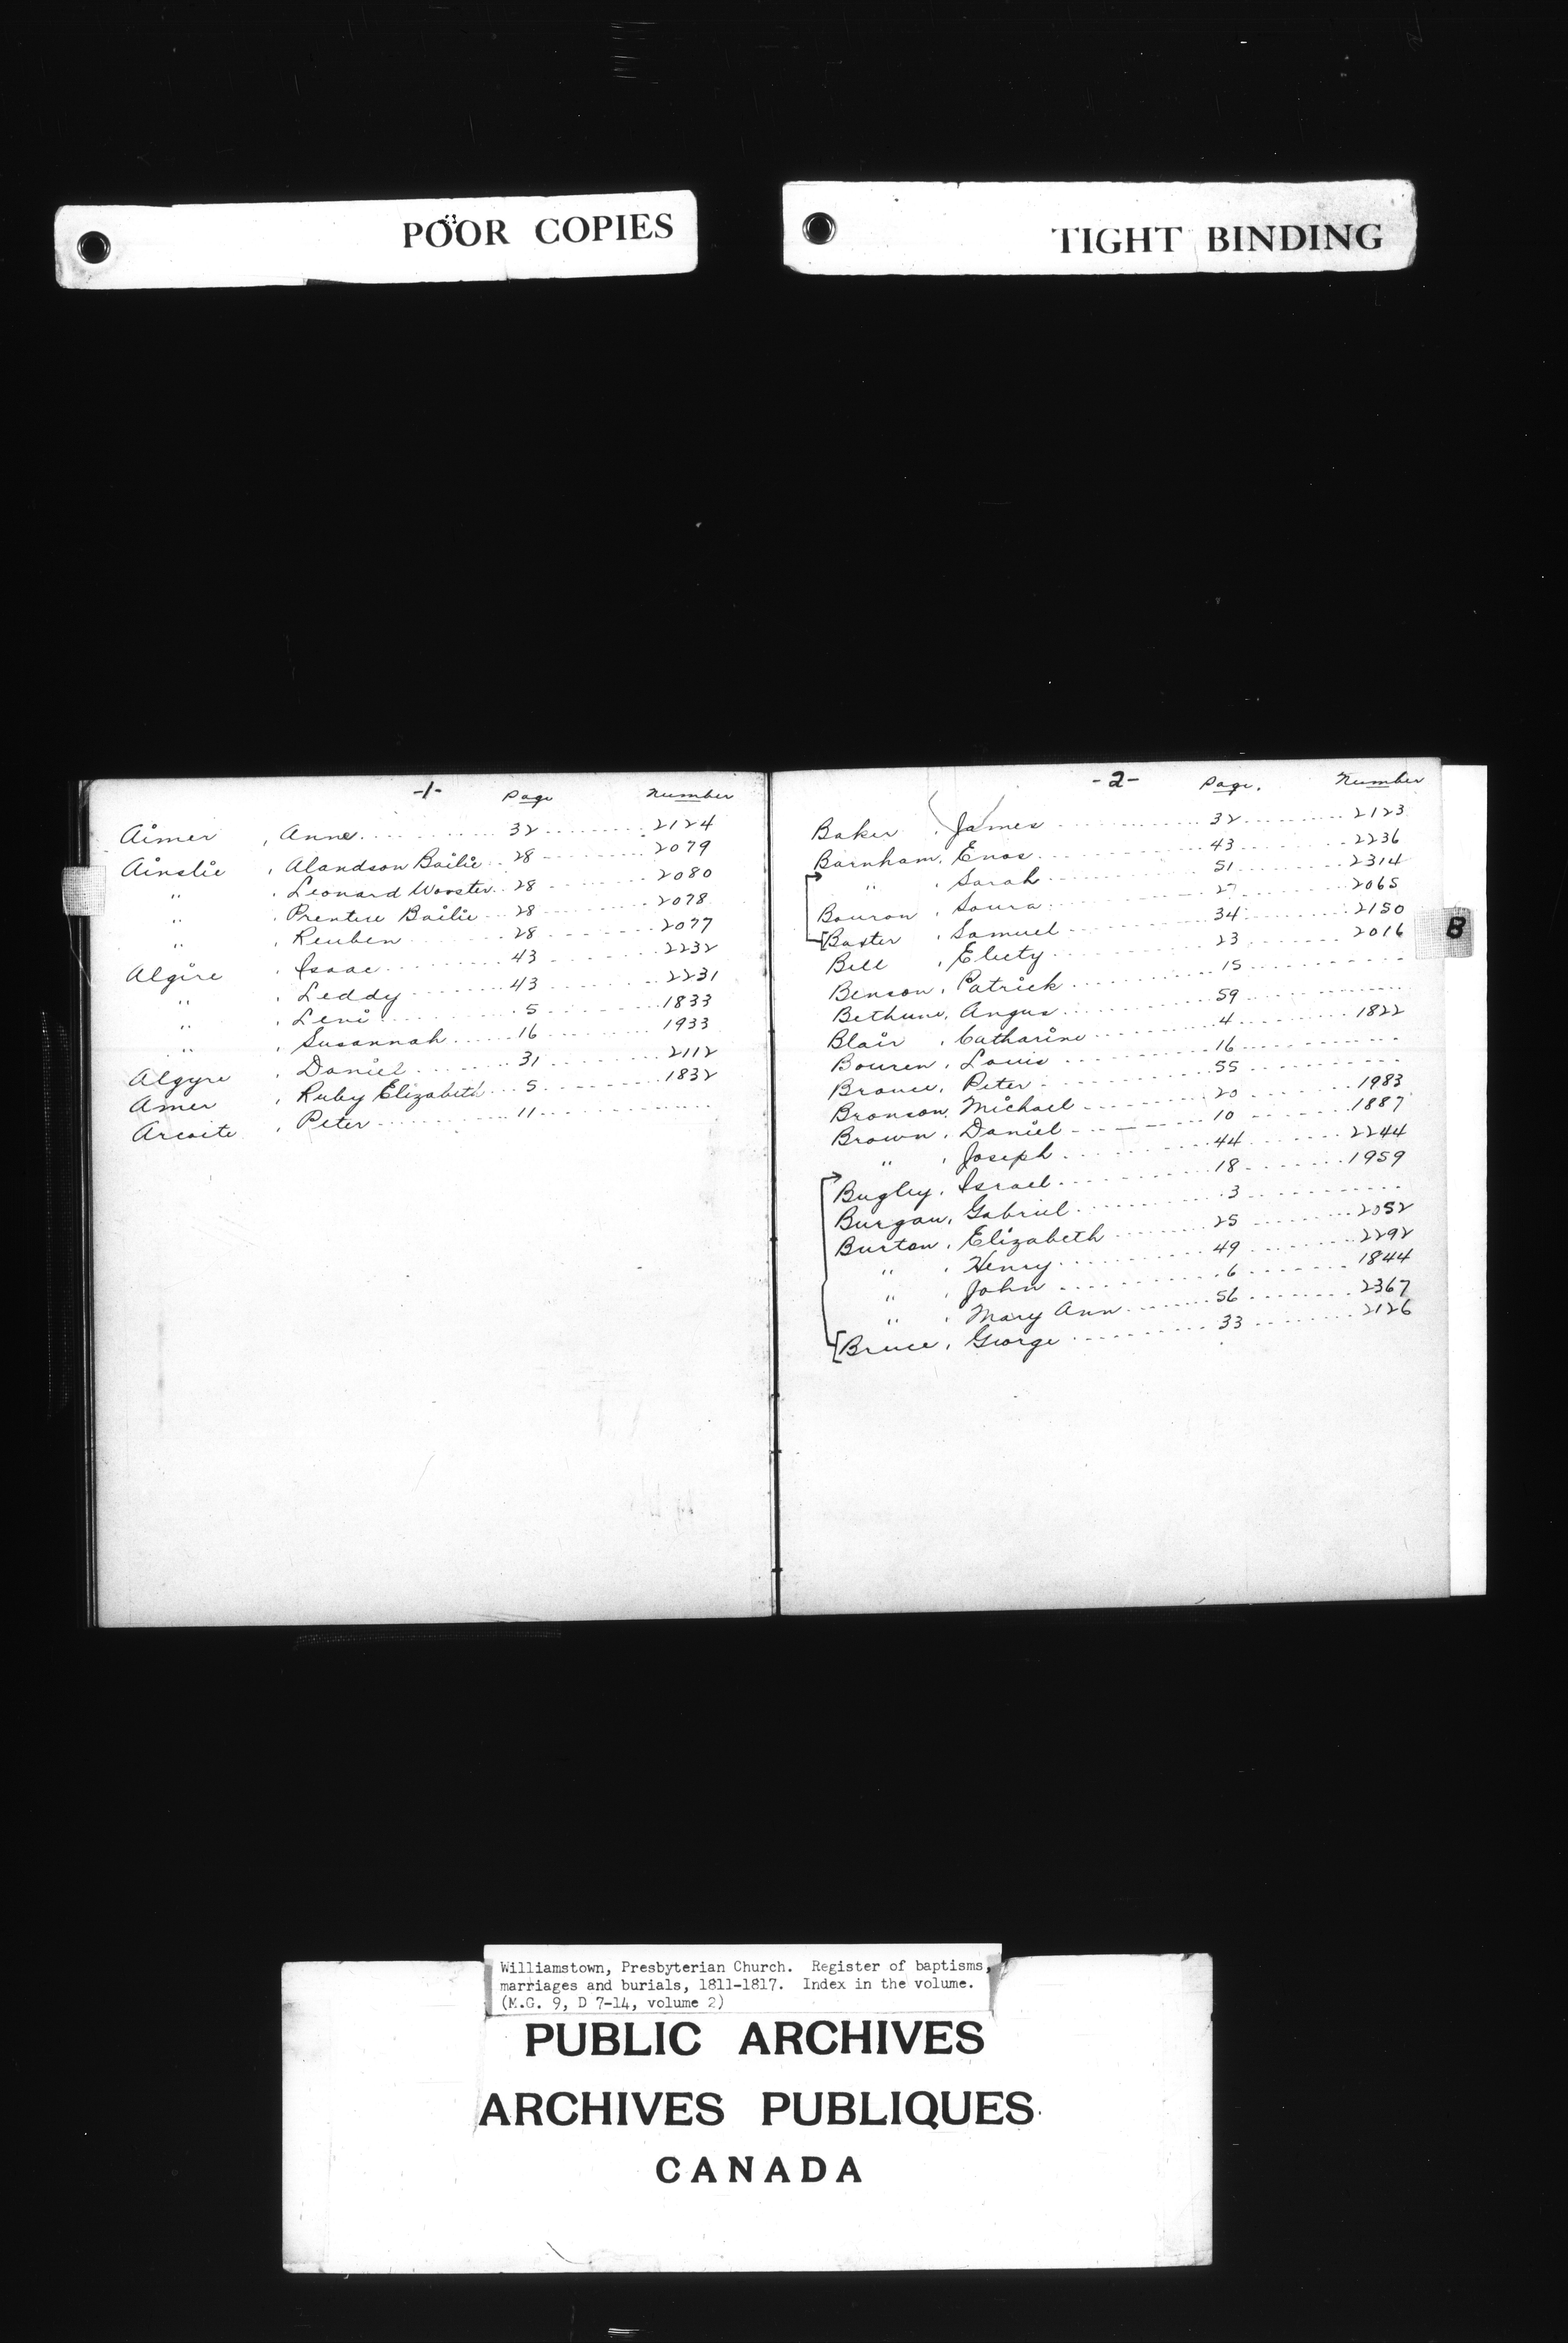 POOR COPIES
TIGHT BINDING
-1- Page Number
Aimer , Anne 32 2124
Ainslie , Alandson Bailie 28 2079
" , Leonard Worster 28 2080
" , Prentice Bailie 28 2078
" , Reuben 28 2077
Algire , Isaac 43 2232
" , Leddy 43 2231
" , Levi 5 1833
" , Susannah 16 1933
Algyre , Daniel 31 2112
Amer , Ruby Elizabeth 5 1832
Arcoite , Peter 11
-2- Page. Number
Baker , James 32 2123
Barnham, Enos 43 2236
" , Sarah 51 2314
Bouron , Soura 27 2065
[Baxter , Samuel 34 2150
Bell , Electy 23 2016
Benson, Patrick 15
Bethune, Angus 59
Blair , Catharine 4 1822
Bouren, Louis 16
Brouce, Peter 55
Bronson, Michael 20 1983
Brown, Daniel 10 1887
" , Joseph 44 2244
Bugley, Israel 18 1959
Burgau, Gabriel 3
Burton, Elizabeth 25 2052
" , Henry 49 2292
" , John 6 1844
" , Mary Ann 56 2367
[Bruce, George 33 2126
B
Williamstown, Presbyterian Church. Register of baptisms,
marriages and burials, 1811-1817. Index in the volume.
(M.G. 9, D 7-14, volume 2)
PUBLIC ARCHIVES
ARCHIVES PUBLIQUES
CANADA